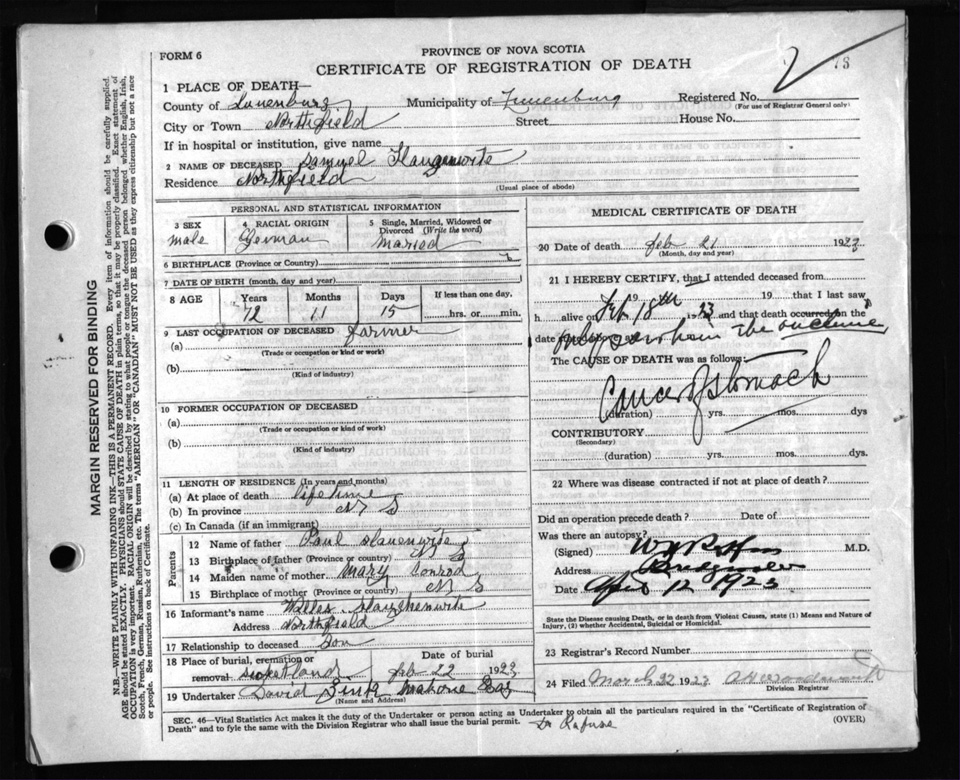 FORM 6
PROVINCE OF NOVA SCOTIA
CERTIFICATE OF REGISTRATION OF DEATH
1 PLACE OF DEATH—
County of Lunenburg Municipality of Lunenburg Registered No.
(For use of Registrar General only)
City or Town Northfield Street House No.
If in hospital or institution, give name
2 NAME OF DECEASED Samuel
Residence Northfield
(Usual place of abode)
PERSONAL AND STATISTICAL INFORMATION
3 SEX 4 RACIAL ORIGIN 5 Single, Married, Widowed or Divorced (Write the word)
male German Maried
6 BIRTHPLACE (Province or Country)
7 DATE OF BIRTH (month, day and year)
8 AGE Years Months Days If less than one day,
72 11 15 hrs. or min.
9 LAST OCCUPATION OF DECEASED farmer
(a)
(Trade or occupation or kind or work)
(b)
(Kind of industry)
10 FORMER OCCUPATION OF DECEASED
(a)
(Trade or occupation or kind of work)
(b)
(Kind of industry)
11 LENGTH OF RESIDENCE (In years and months)
(a) At place of death life time
(b) In province N S
(c) In Canada (if an immigrant)
Parents
12 Name of father Paul
13 Birthplace of father (Province or country) N S
14 Maiden name of mother Mary Conrod
15 Birthplace of mother (Province or country) N S
16 Informant's name
Address Northfield
17 Relationship to deceased Son
18 Place of burial, cremation or removal Date of burial
Feb 22 1923
19 Undertaker David Mahone Bay
(Name and Address)
MEDICAL CERTIFICATE OF DEATH
20 Date of death Feb 21 1923
(Month, day and year)
21 I HEREBY CERTIFY, that I attended deceased from
19 19 that I last saw
h alive on Feb 18th 23 and that death occurred on the
date stated above at
The CAUSE OF DEATH was as follows:
Cancer of stomach
(duration) yrs. mos. dys
CONTRIBUTORY
(Secondary)
(duration) yrs. mos. dys.
22 Where was disease contracted if not at place of death?
Did an operation precede death? Date of
Was there an autopsy?
(Signed) M.D.
Address
Date April 12 1923
State the Disease causing Death, or in death from Violent Causes, state (1) Means and Nature of
Injury, (2) whether Accidental, Suicidal or Homicidal.
23 Registrar's Record Number
24 Filed March 22 1923
Division Registrar
SEC. 46—Vital Statistics Act makes it the duty of the Undertaker or person acting as Undertaker to obtain all the particulars required in the "Certificate of Registration of
Death" and to fyle the same with the Division Registrar who shall issue the burial permit. (OVER)
Dr Rafuse
MARGIN RESERVED FOR BINDING
N.B.—WRITE PLAINLY WITH UNFADING INK—THIS IS A PERMANENT RECORD. Every item of information should be carefully supplied.
AGE should be stated EXACTLY. PHYSICIANS should STATE CAUSE OF DEATH in plain terms, so that it may be properly classified. Exact statement of
OCCUPATION is very important. RACIAL ORIGIN will be described by stating to what people or tongue the deceased person belonged whether English, Irish,
Scotch, French, German, Russian, Ruthenian, etc. The terms "AMERICAN" OR "CANADIAN" MUST NOT BE USED as they express citizenship but not a race
or people. See instructions on back of Certificate.